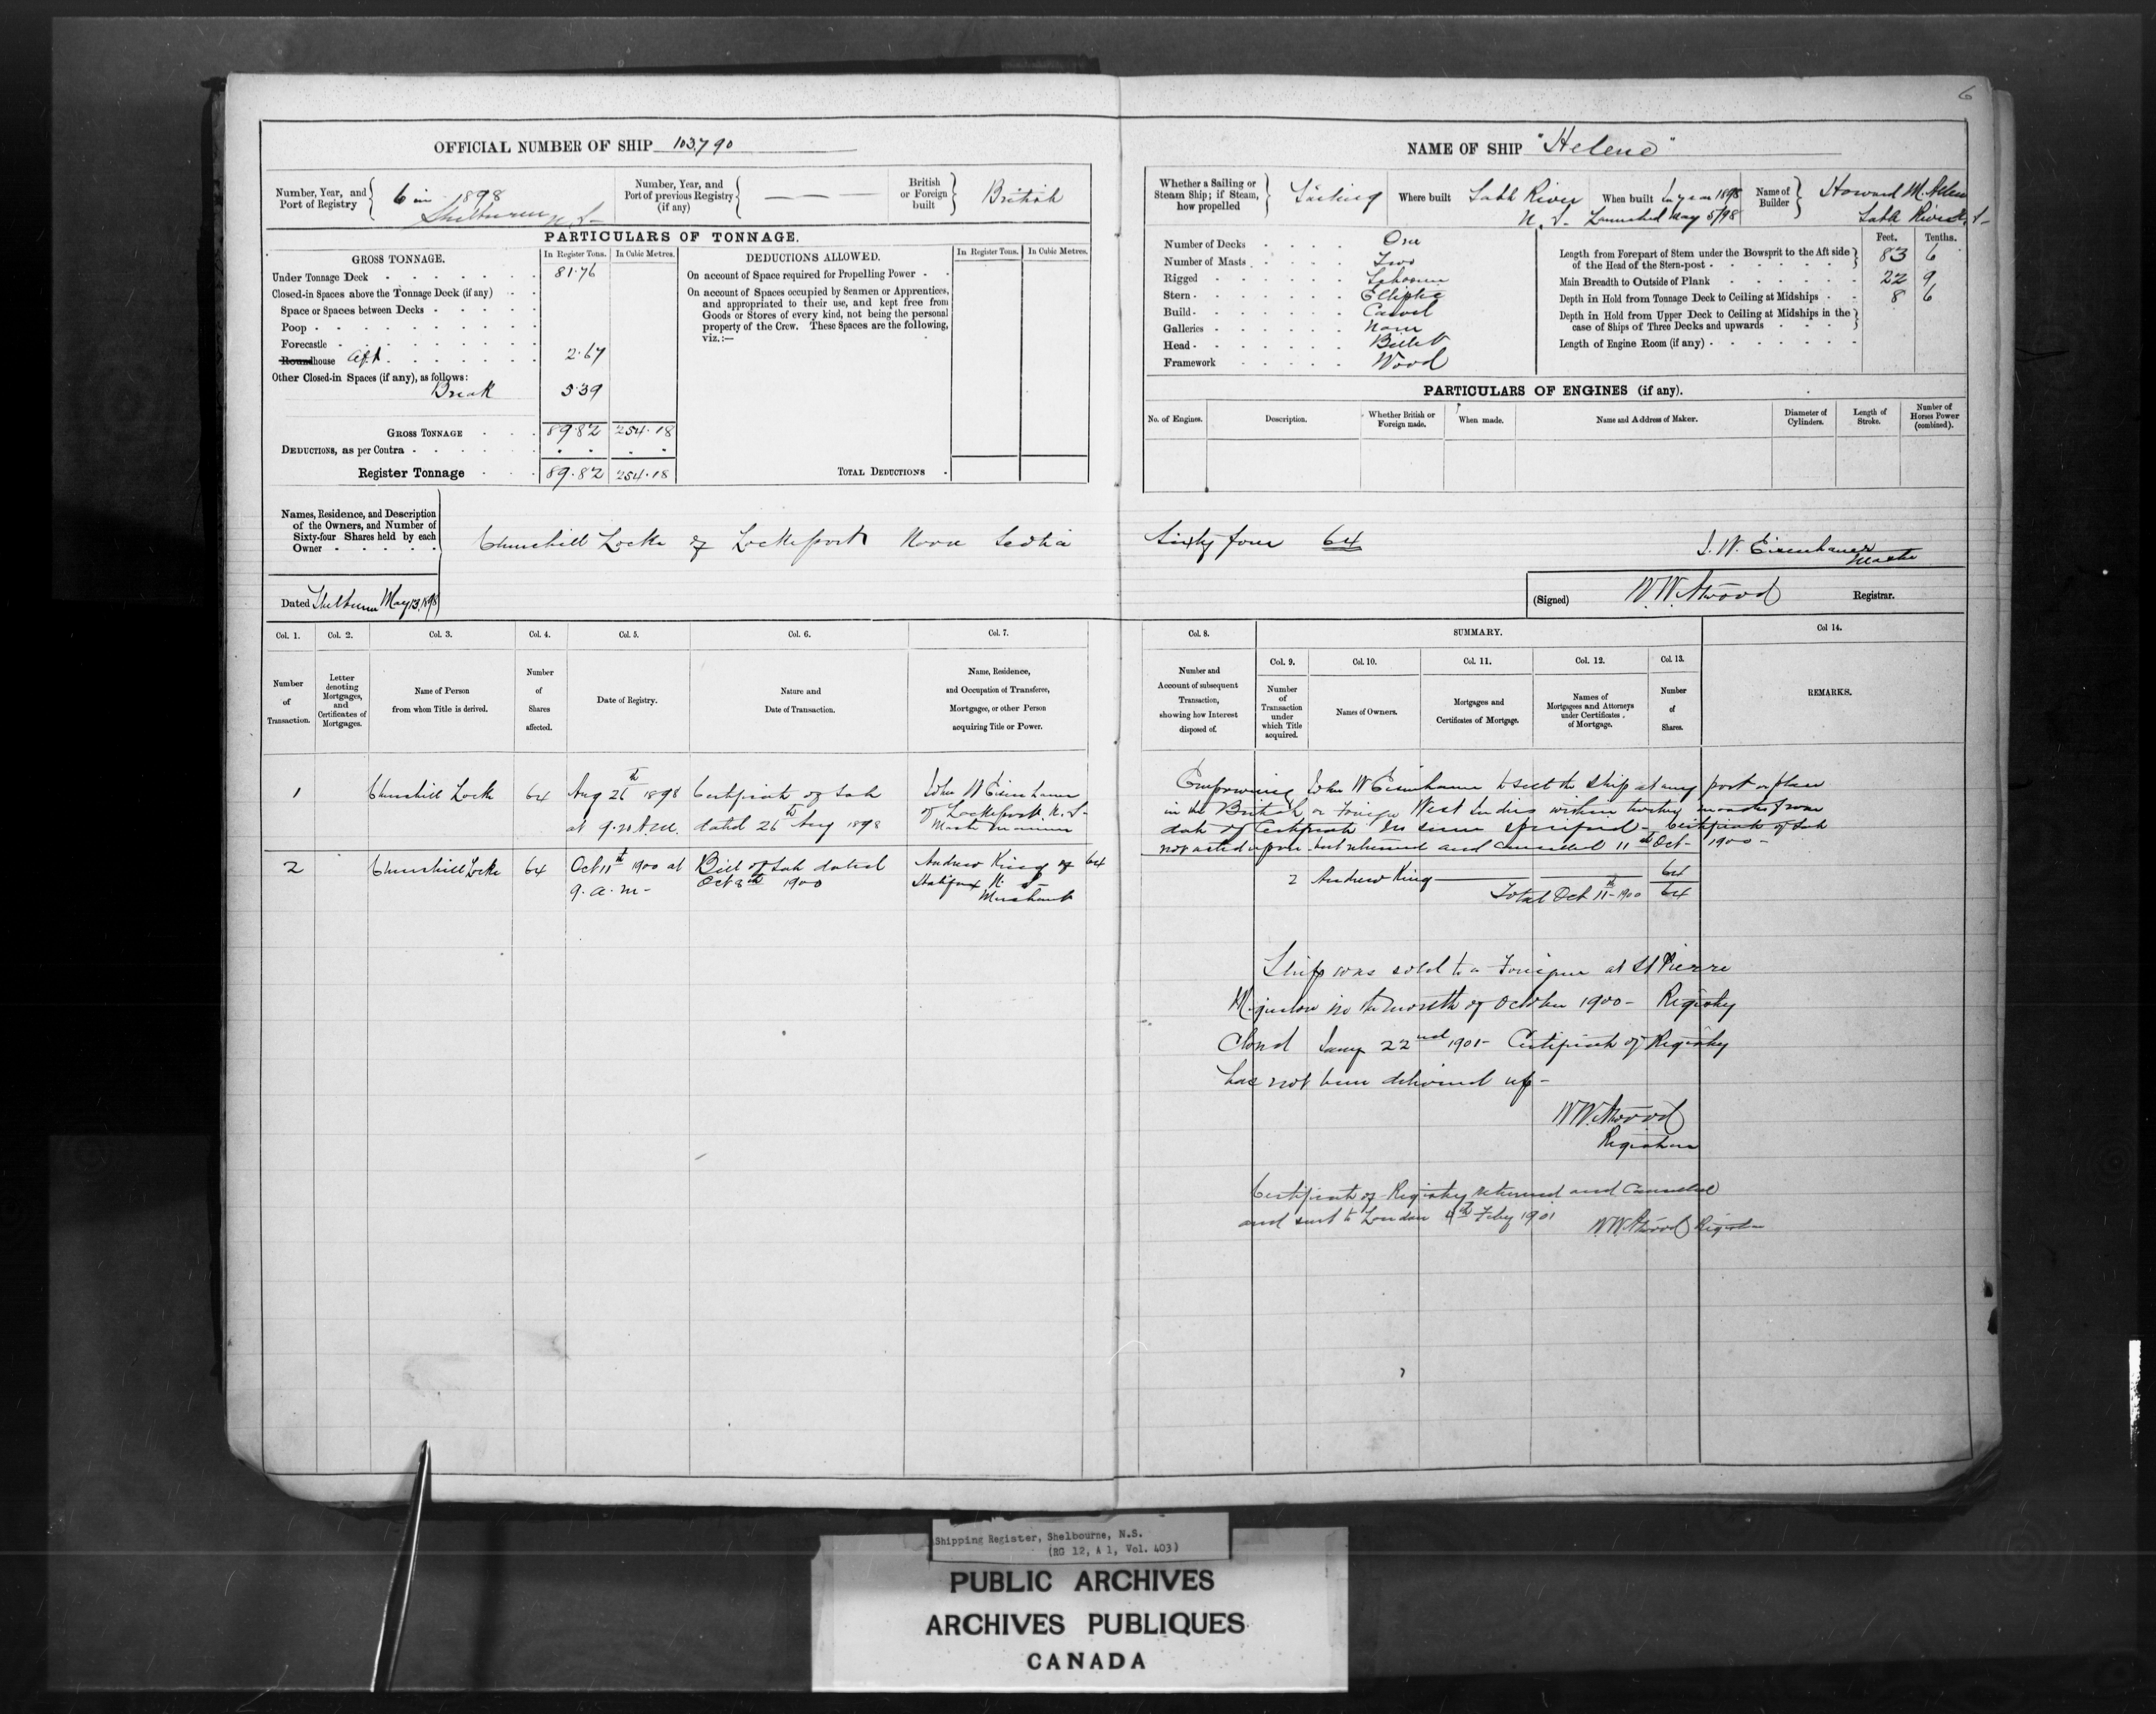 6
OFFICIAL NUMBER OF SHIP 103,790
Number, Year, and Port of Registry
6 in 1898
Shelburne N.S-
Number, Year, and Port of previous Registry (if any)
British or Foreign built
British
PARTICULARS OF TONNAGE.
GROSS TONNAGE.
In Register Tons.
In Cubic Metres.
Under Tonnage Deck 81.76
Closed-in Spaces above the Tonnage Deck (if any)
Space or Spaces between Decks
Poop
Forecastle
Roundhouse Aft 2.67
Other Closed-in Spaces (if any), as follows:
Break 5.39
GROSS TONNAGE 89.82 254.18
DEDUCTIONS, as per Contra
Register Tonnage 89.82 254.18
DEDUCTIONS ALLOWED.
In Register Tons. In Cubic Metres.
On account of Space required for Propelling Power
On account of Spaces occupied by Seamen or Apprentices,
and appropriated to their use, and kept free from
Goods or Stores of every kind, not being the personal
property of the Crew. These Spaces are the following,
viz.:—
TOTAL DEDUCTIONS
NAME OF SHIP "Helene"
Whether a Sailing or Steam Ship; if Steam, how propelled
Sailing
Where built
Sable River
N.S.
When built In year 1898
Launched May 5/98
Name of Builder
Howard M. Allen
Sable River N.S-
Number of Decks One
Number of Masts Two
Rigged Schooner
Stern Elliptic
Build Carvel
Galleries None
Head Billet
Framework Wood
Feet. Tenths.
Length from Forepart of Stem under the Bowsprit to the Aft side
of the Head of the Stern-post 83 6
Main Breadth to Outside of Plank 22 9
Depth in Hold from Tonnage Deck to Ceiling at Midships 8 6
Depth in Hold from Upper Deck to Ceiling at Midships in the
case of Ships of Three Decks and upwards
Length of Engine Room (if any)
PARTICULARS OF ENGINES (if any).
No. of Engines.
Description.
Whether British or Foreign made.
When made.
Name and Address of Maker.
Diameter of Cylinders.
Length of Stroke.
Number of Horses Power (combined).
Names, Residence, and Description
of the Owners, and Number of
Sixty-four Shares held by each
Owner
Churchill Locke of Lockeport Nova Scotia Sixty four 64
J. W. Eisenhauer
Master
Dated Shelburne May 13, 1898
(Signed) W. W. Atwood Registrar.
Col. 1.
Col. 2.
Col. 3.
Col. 4.
Col. 5.
Col. 6.
Col. 7.
Col. 8.
SUMMARY.
Col. 9.
Col. 10.
Col. 11.
Col. 12.
Col. 13.
Col 14.
Number of Transaction.
Letter denoting Mortgages, and Certificates of Mortgages.
Name of Person from whom Title is derived.
Number of Shares affected.
Date of Registry.
Nature and Date of Transaction.
Name, Residence, and Occupation of Transferee, Mortgagee, or other Person acquiring Title or Power.
Number and Account of subsequent Transaction, showing how Interest disposed of.
Number of Transaction under which Title acquired.
Names of Owners.
Mortgages and Certificates of Mortgage.
Names of Mortgagees and Attorneys under Certificates of Mortgage.
Number of Shares.
REMARKS.
1 Churchill Locke 64
Aug 26th 1898
at 9.20 A.M.
Certificate of Sale
dated 26th Aug 1898
John W Eisenhauer
of Lockeport N.S-
Master Mariner
Empowering John W Eisenhauer to sell the ship at any port or place
in the British or Foreign West Indies within twelve months from
date of Certificate for sum specified- Certificate of Sale
not acted upon but returned and cancelled 11th Oct- 1900-
2 Churchill Locke 64
Oct 11th 1900 at
9. a. m-
Bill of Sale dated
Oct 8th 1900
Andrew King of 64
Halifax N S-
Merchant
2 Andrew King 64
Total Oct 11th 1900 64
Ship was sold to a Foreigner at St Pierre
Miquelon in the month of October 1900- Registry
Closed Jany 22nd 1901- Certificate of Registry
has not been delivered up-
W W. Atwood
Registrar
Certificate of Registry returned and Cancelled
and sent to London 4th Feby 1901
W.W. Atwood Registrar
Shipping Register, Shelbourne, N.S.
(RG 12, A 1, Vol. 403)
PUBLIC ARCHIVES
ARCHIVES PUBLIQUES
CANADA